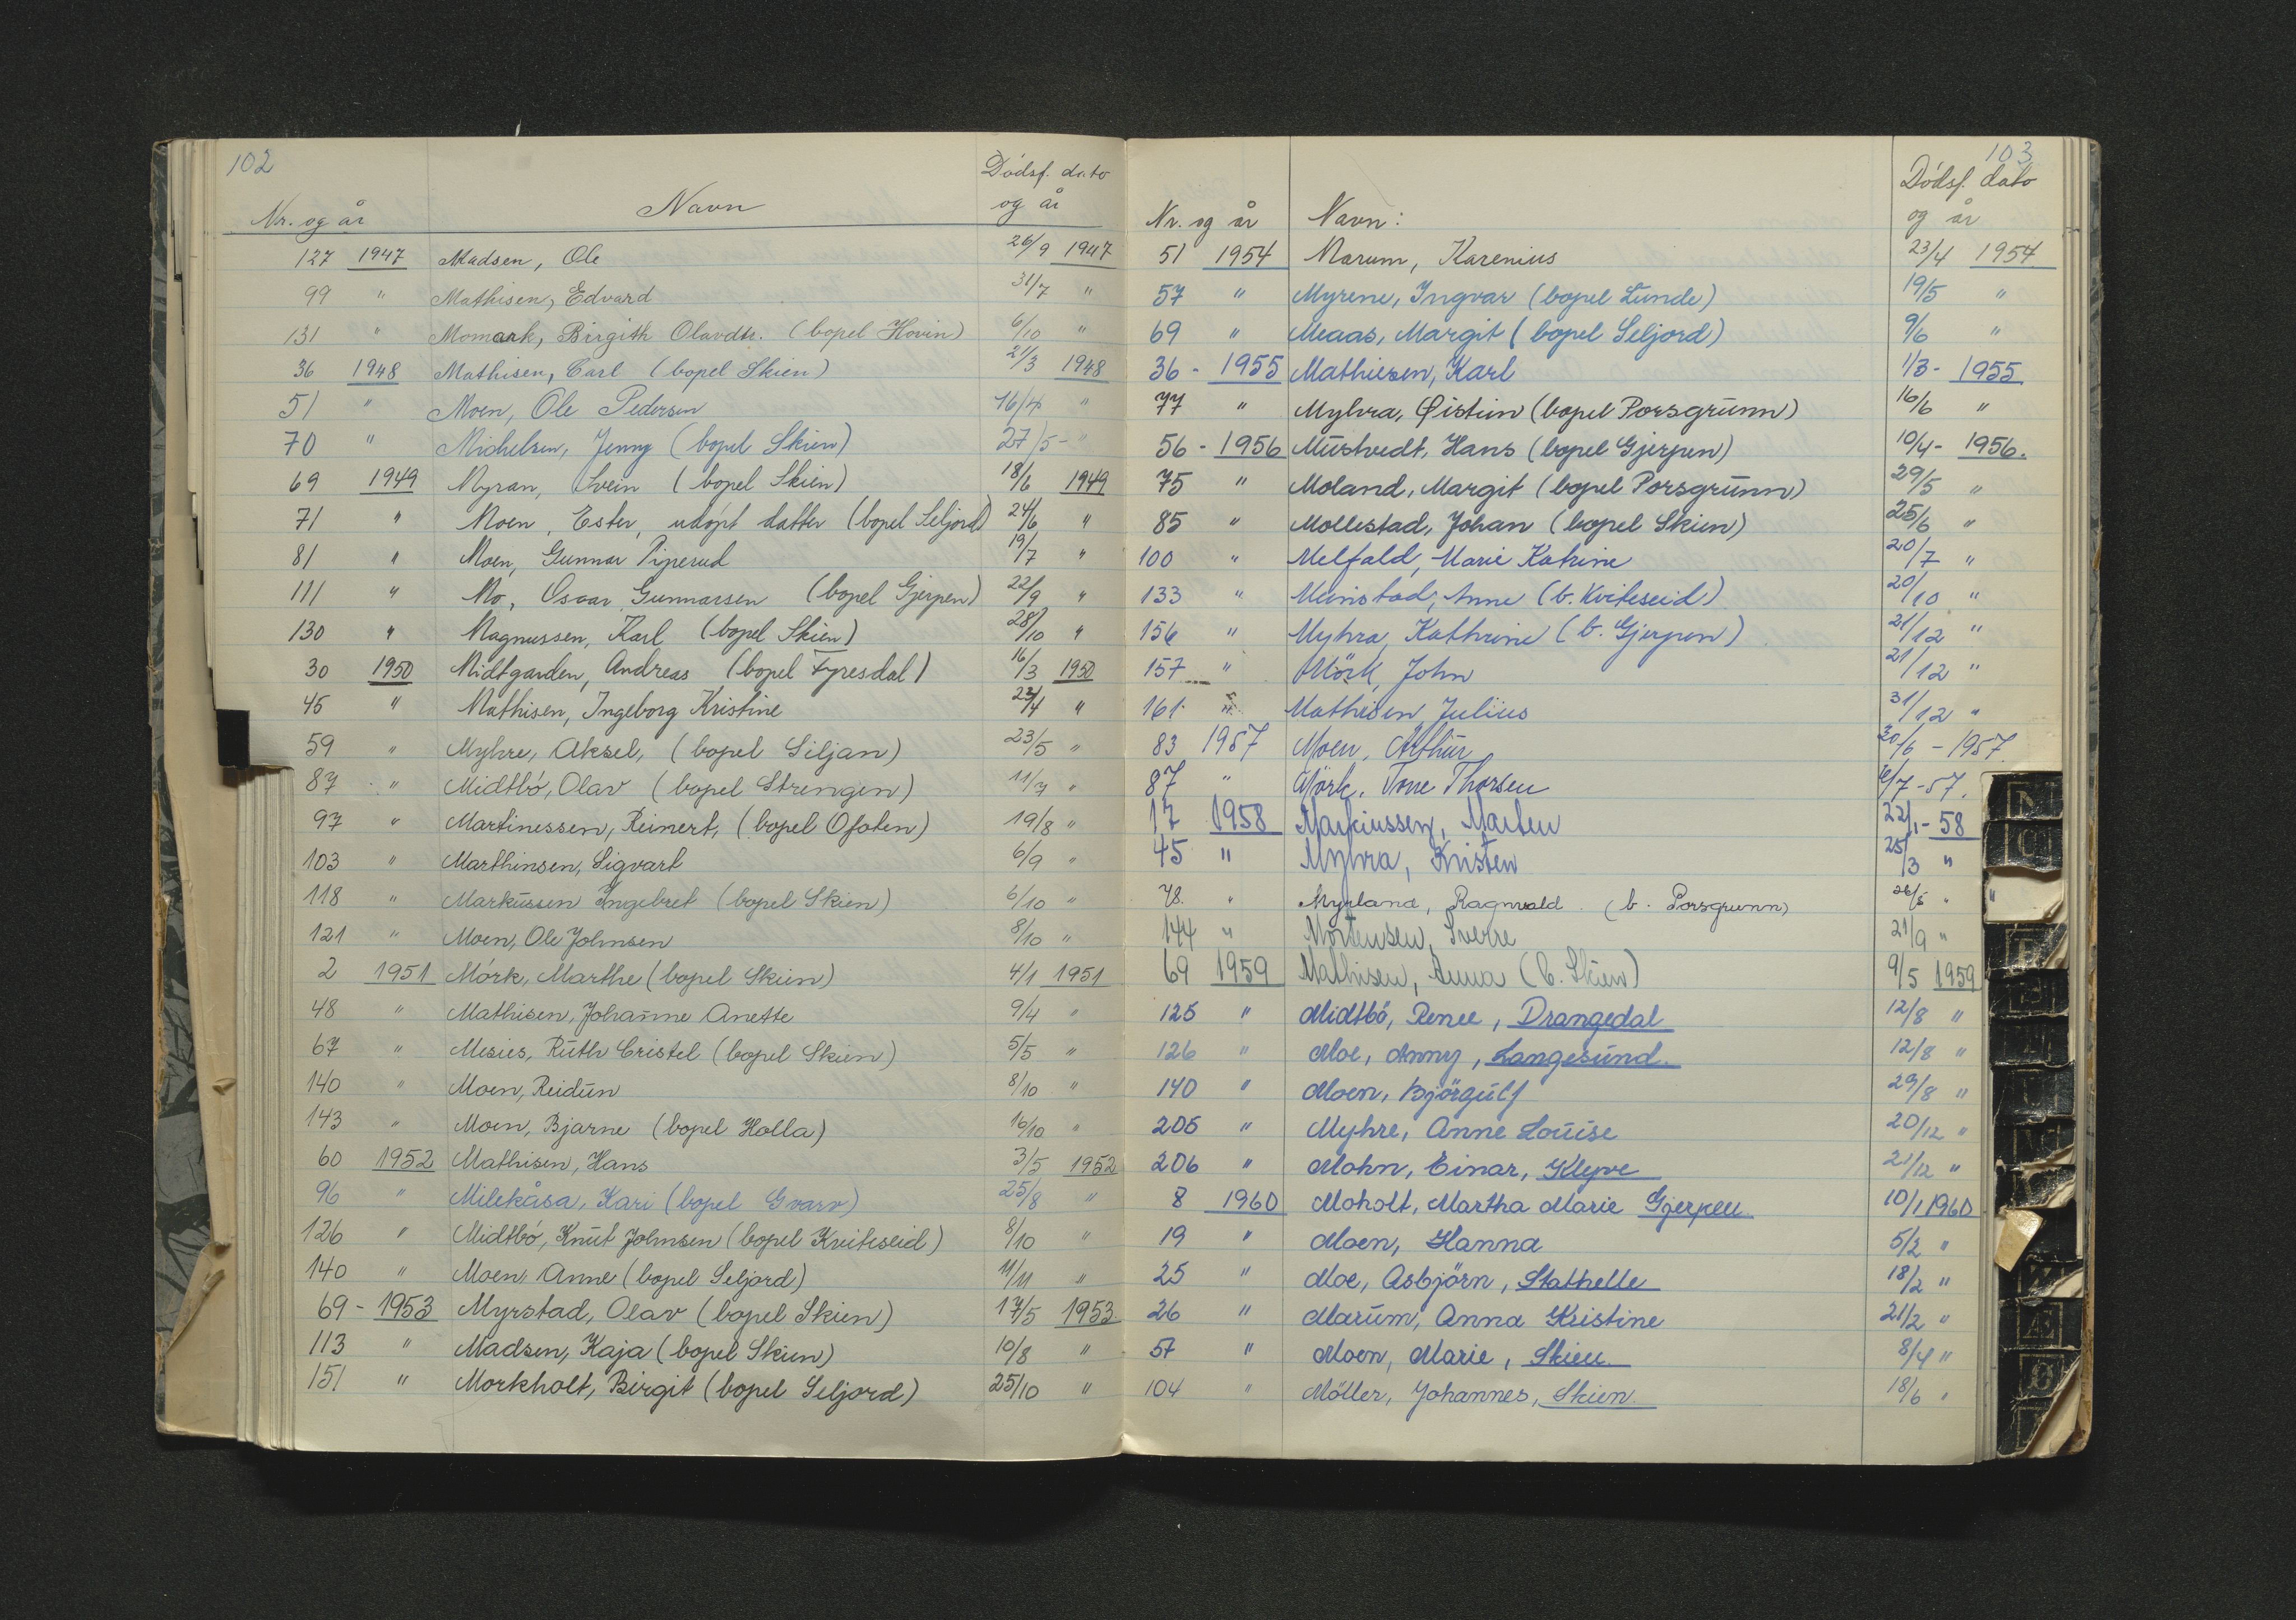 102
Nr. og år Navn Dödsf. dato og år
127 1947 Madsen, Ole 26/9 1947
99 " Mathisen, Edvard 31/7 "
131 " Momark, Birgith Olavdtr. (bopel Hovin) 6/10 "
36 1948 Mathisen, Carl (bopel Skien) 21/3 1948
51 " Moen, Ole Pedersen 16/4 "
70 " Michelsen, Jenny (bopel Skien) 27/5 - "
69 1949 Myran, Svein (bopel Skien) 18/6 1949
71 " Moen, Ester, adopt datter (bopel Seljord) 24/6 "
81 " Moen, Gunnar Piperud 19/7 "
111 " Mo, Oscar Gunnarsen (bopel Gjerpen) 22/9 "
130 " Magnussen, Karl (bopel Skien) 28/10 "
30 1950 Midtgarden, Andreas (bopel Fyresdal) 16/3 1950
45 " Mathisen, Ingeborg Kristine 22/4 "
59 " Myhre, Aksel, (bopel Siljan) 23/5 "
87 " Midtbö, Olav (bopel Strengen) 11/7 "
97 " Martinessen, Reinert, (bopel Ofoten) 19/8 "
103 " Marthinsen, Sigvart 6/9 "
118 " Markussen Ingebret (bopel Skien) 6/10 "
121 " Moen, Ole Johnsen 8/10 "
2 1951 Mörk, Marthe (bopel Skien) 4/1 1951
48 " Mathisen, Johanne Anette 9/4 "
67 " Mesies, Ruth Cristel (bopel Skien) 5/5 "
140 " Moen, Reidun 8/10 "
143 " Moen, Bjarne (bopel Holla) 16/10 "
60 1952 Mathisen, Hans 3/5 1952
96 " Milekåsa, Kari (bopel Gvarv) 25/8 "
126 " Midtbö, Knut Johnsen (bopel Kviteseid) 8/10 "
140 " Moen, Anne (bopel Seljord) 11/11 "
69 - 1953 Myrstad, Olav (bopel Skien) 17/5 1953
113 " Madsen, Kaja (bopel Skien) 10/8 "
151 " Morkholt, Birgit (bopel Seljord) 25/10 "
103
Nr. og år Navn: Dödsf. dato og år
51 1954 Marum, Karenius 23/4 1954
57 " Myrene, Ingvar (bopel Lunde) 19/5 "
69 " Maas, Margit (bopel Seljord) 9/6 "
36 - 1955 Mathiesen, Karl 1/3 - 1955
77 " Myhra, Øistein (bopel Porsgrunn) 16/6 "
56 - 1956 Mustvedt, Hans (bopel Gjerpen) 10/4 - 1956.
75 " Moland, Margit (bopel Porsgrunn) 29/5 "
85 " Mollestad, Johan (bopel Skien) 25/6 "
100 " Melfald, Marie Katrine 20/7 "
133 " Meinstad, Anne (b. Kviteseid) 20/10 "
156 " Myhra, Kathrine (b. Gjerpen) 21/12 "
157 " Mörk, John 21/12 "
161 " Mathisen, Julius 31/12 "
83 1957 Moen, Arthur 20/6 - 1957.
87 " Mörk, Tone Thorsen /7 - 57.
17 1958 Markussen, Marten 22/1 - 58
45 " Myhra, Kristen 25/3 "
78. " Myrland, Ragnvald. (b. Porsgrunn) 26/5 " "
144 " Mortensen, Sverre 21/9 "
69 1959 Mathisen, Anna (b. Skien) 9/5 1959
125 " Midtbö, Renee, Drangedal 12/8 "
126 " Moe, Anny, Langesund. 12/8 "
140 " Moen, Björgulf 29/8 "
205 " Myhre, Anne Louise 20/12 "
206 " Mohn, Einar, Klyve 21/12 "
8 1960 Moholt, Martha Marie Gjerpen 10/1 1960
19 " Moen, Hanna 5/2 "
25 " Moe, Asbjörn, Stathelle 18/2 "
26 " Marum, Anna Kristine 21/2 "
57 " Moen, Marie, Skien. 8/4 "
104 " Möller, Johannes, Skien. 18/6 "
N
O
Æ
Ø